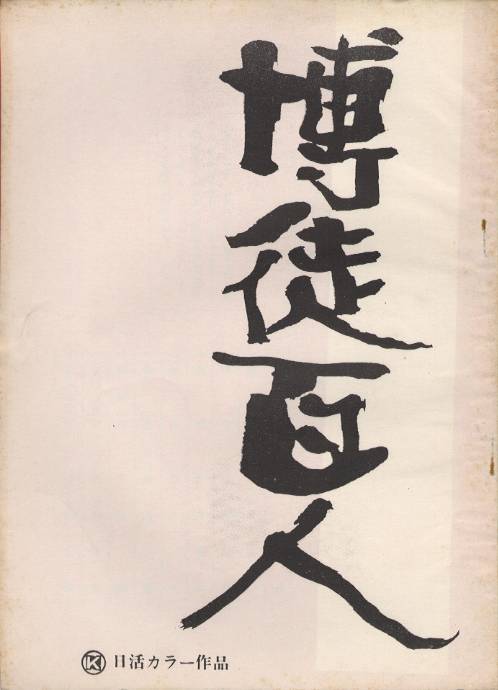 博徒百人
K 日活カラー作品